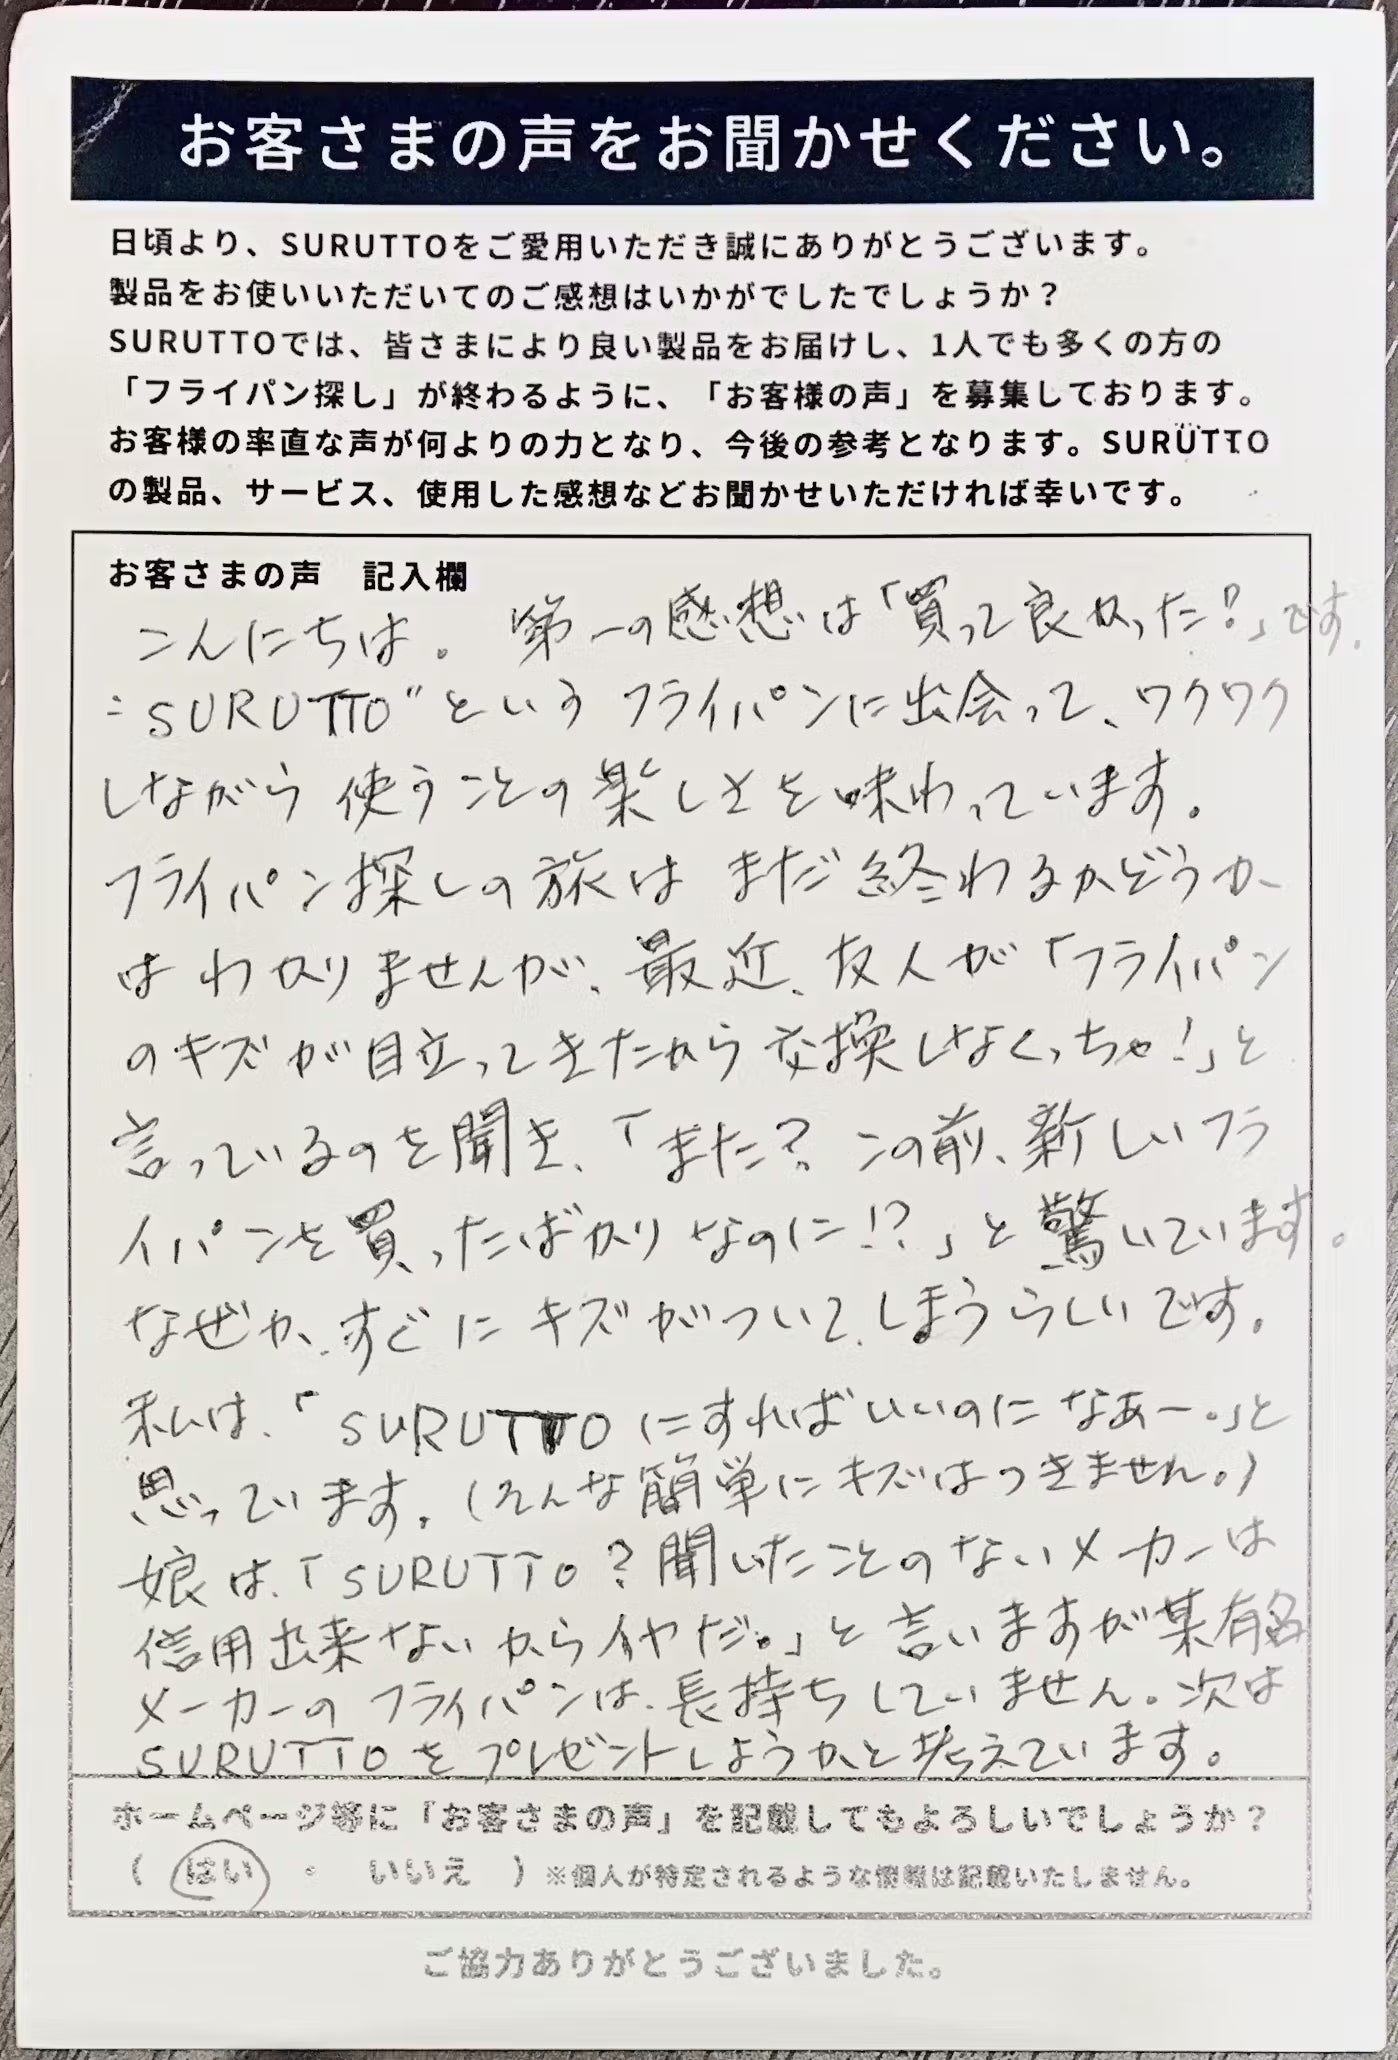 お客さまの声をお聞かせください。
日頃より、SURUTTOをご愛用いただき誠にありがとうございます。
製品をお使いいただいてのご感想はいかがでしたでしょうか？
SURUTTOでは、皆さまにより良い製品をお届けし、1人でも多くの方の
「フライパン探し」が終わるように、「お客様の声」を募集しております。
お客様の率直な声が何よりの力となり、今後の参考となります。SURUTTO
の製品、サービス、使用した感想などお聞かせいただければ幸いです。
お客さまの声　記入欄
こんにちは。第一の感想は「買って良かった!」です。
"SURUTTO"というフライパンに出会って、ワクワク
しながら使うことの楽しさを味わっています。
フライパン探しの旅はまだ終わるかどうか
はわかりませんが、最近、友人が「フライパン
のキズが目立ってきたから交換しなくっちゃ!」と
言っているのを聞き、「また?この前、新しいフラ
イパンを買ったばかりなのに!?」と驚いています。
なぜか、すぐにキズがついてしまうらしいです。
私は、「SURUTTOにすればいいのになあー。」と
思っています。(そんな簡単にキズはつきません。)
娘は、「SURUTTO?聞いたことのないメーカーは
信用出来ないからイヤだ。」と言いますが某有名
メーカーのフライパンは、長持ちしていません。次は
SURUTTOをプレゼントしようかと考えています。
ホームページ等に「お客さまの声」を記載してもよろしいでしょうか？
（　はい　・　いいえ　）※個人が特定されるような情報は記載いたしません。
ご協力ありがとうございました。